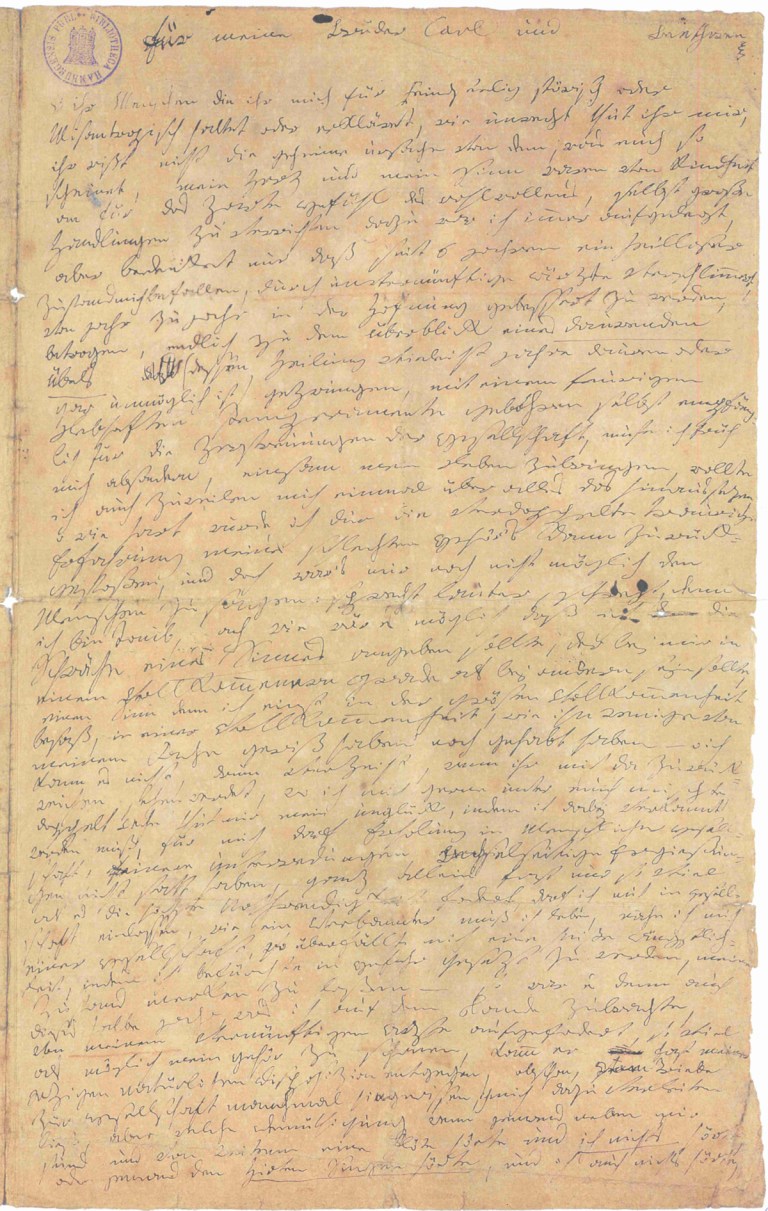 für meine Brüder Carl und Beethoven
O ihr Menschen die ihr mich für Feindseelig störisch oder
Misantropisch haltet oder erkläret, wie unrecht thut ihr mir,
ihr wißt nicht die geheime urßache von dem, was euch so
scheinet, mein Herz und mein Sinn waren von Kindheit
an für das Zarte Gefühl des wohlwollens, selbst große
Handlungen zu verrichten dazu war ich immer aufgelegt,
aber bedenket nur daß seit 6 jahren ein heilloser
Zustand mich befallen, durch unvernünftige ärzte verschlimmert,
von jahr zu jahr in der Hofnung gebessert zu werden,
betrogen, endlich zu dem überblick eines daurenden
Übels (dessen Heilung vieleicht jahre dauren oder
gar unmöglich ist) gezwungen, mit einem feurigen
Lebhaften Temperamente gebohren selbst empfäng-
lich für die Zerstreuungen der Gesellschaft, muste ich früh
mich absondern, einsam mein Leben zubringen, wollte
ich auch zuweilen mich einmal über alles das hinaussezen,
o wie hart wurde ich dur die verdoppelte traurige
Erfahrung meines schlechten Gehör's dann zurück-
gestoßen, und doch war's mir noch nicht möglich den
Menschen zu sagen: sprecht lauter, schreyt, denn
ich bin taub, ach wie wär es möglich daß ich dann die
Schwäche eines Sinnes angeben sollte, der bey mir in
einem Vollkommenern grade als bey andern seyn sollte,
einen Sinn den ich einst in der grösten Vollkommenheit
besaß, in einer Vollkommenheit, wie ihn wenige von
meinem Fache gewiß haben noch gehabt haben – o ich
kann es nicht, drum verzeiht, wenn ihr mich da zurück-
weichen sehen werdet, wo ich mich gerne unter euch mischte,
doppelt Wehe thut mir mein unglück, indem ich dabey verkannt
werden muß, für mich darf Erholung in Menschlicher Gesell-
schaft, feinere unterredungen, Wechselseitige Ergießun-
gen nicht statt haben, ganz allein fast nur so viel
als es die höchste Nothwendigkeit fodert, darf ich mich in gesell-
schaft einlassen, wie ein Verbannter muß ich leben, nahe ich mich
einer Gesellschaft, so überfällt mich eine heiße ängstlich-
keit, indem ich befürchte in Gefahr gesezt zu werden, meinen
Zustand merken zu laßen – so war es denn auch
dieses halbe jahr, was ich auf dem Lande zubrachte,
von meinem vernünftigen Arzte aufgefodert, so viel
als möglich mein Gehör zu schonen, kamm er fast meiner
jezigen natürlichen Disposizion entgegen, obschon, Vom Triebe
zur Gesellschaft manchmal hingerissen, ich mich dazu verleiten
ließ, aber welche Demüthigung wenn jemand neben mir
stund und von weitem eine flöte hörte und ich nichts hörte,
oder jemand den Hirten Singen hörte, und ich auch nichts hörte,